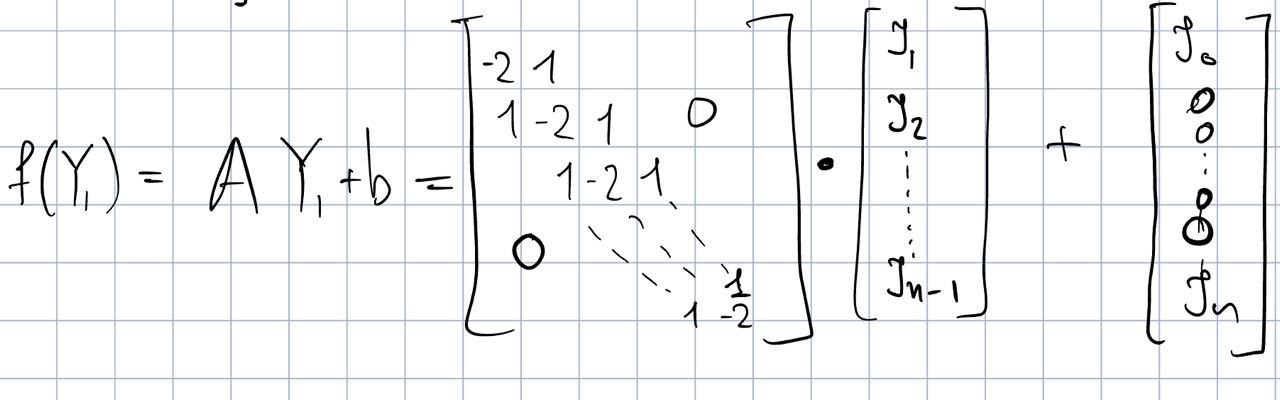 f(Y₁) = A Y₁ + b = [ -2 1
1 -2 1 0
1 -2 1
0 ⋱ ⋱ ⋱ 1
1 -2 ] • [ y₁
y₂
⋮
yₙ₋₁ ] + [ y₀
0
0
⋮
0
0
yₙ ]